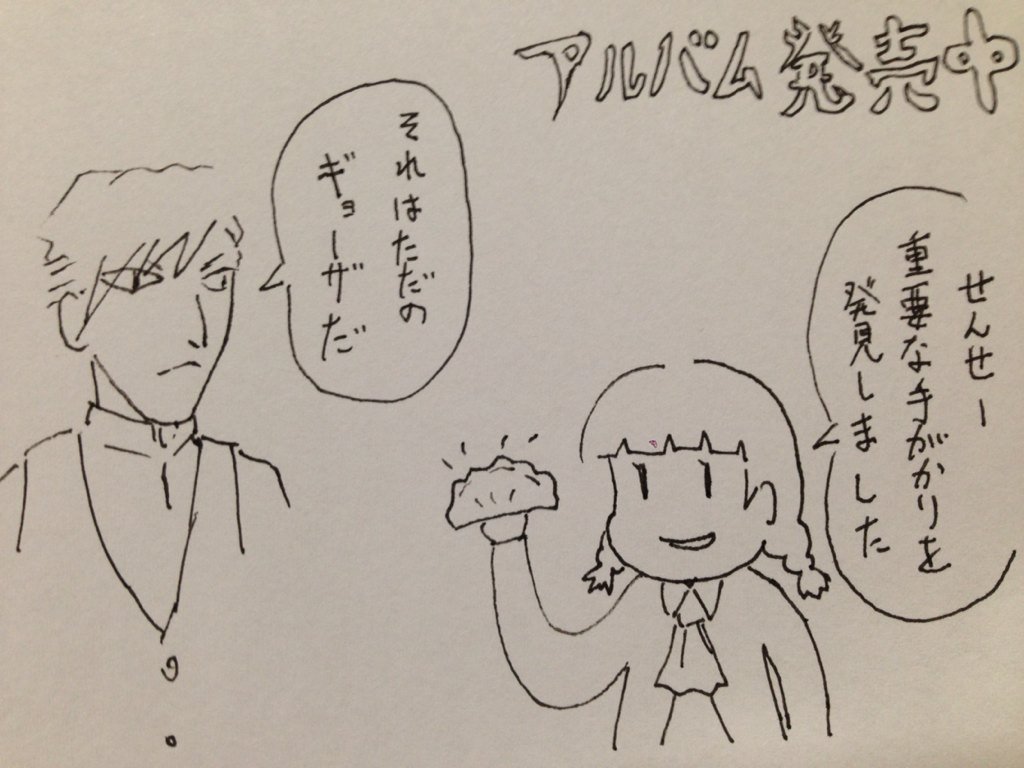 アルバム発売中
せんせー
重要な手がかりを
発見しました
それはただの
ギョーザだ